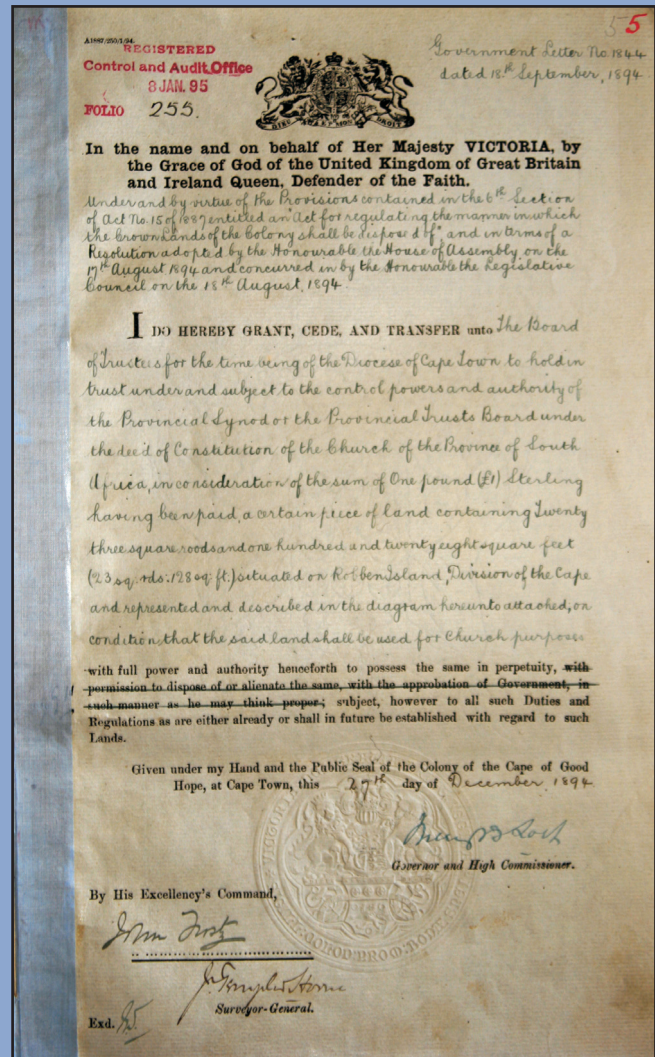 55
A1887/255/1/94.
REGISTERED
Control and Audit Office
8 JAN. 95
FOLIO 255.
Government Letter No. 1844
dated 18th September, 1894.
DIEU ET MON DROIT
In the name and on behalf of Her Majesty VICTORIA, by
the Grace of God of the United Kingdom of Great Britain
and Ireland Queen, Defender of the Faith.
Under and by virtue of the Provisions contained in the 6th Section
of Act No. 15 of 1887 entitled an "Act for regulating the manner in which
the Crown Lands of the Colony shall be disposed of" and in terms of a
Resolution adopted by the Honourable the House of Assembly on the
17th August 1894 and concurred in by the Honourable the Legislative
Council on the 18th August, 1894.
I DO HEREBY GRANT, CEDE, AND TRANSFER unto The Board
of Trustees for the time being of the Diocese of Cape Town to hold in
trust under and subject to the control powers and authority of
the Provincial Synod or the Provincial Trusts Board under
the deed of Constitution of the Church of the Province of South
Africa, in consideration of the sum of One pound (£1) Sterling
having been paid, a certain piece of land containing Twenty
three square roods and one hundred and twenty eight square feet
(23 sq. rds: 128 sq. ft.) situated on Robben Island, Division of the Cape
and represented and described in the diagram hereunto attached, on
condition that the said land shall be used for Church purposes
with full power and authority henceforth to possess the same in perpetuity, with
permission to dispose of or alienate the same, with the approbation of Government, in
such manner as he may think proper; subject, however to all such Duties and
Regulations as are either already or shall in future be established with regard to such
Lands.
Given under my Hand and the Public Seal of the Colony of the Cape of Good
Hope, at Cape Town, this 27th day of December 1894
Henry B Loch
Governor and High Commissioner.
By His Excellency's Command,
John Frost
J. Templer Horne
Surveyor-General.
Exd.